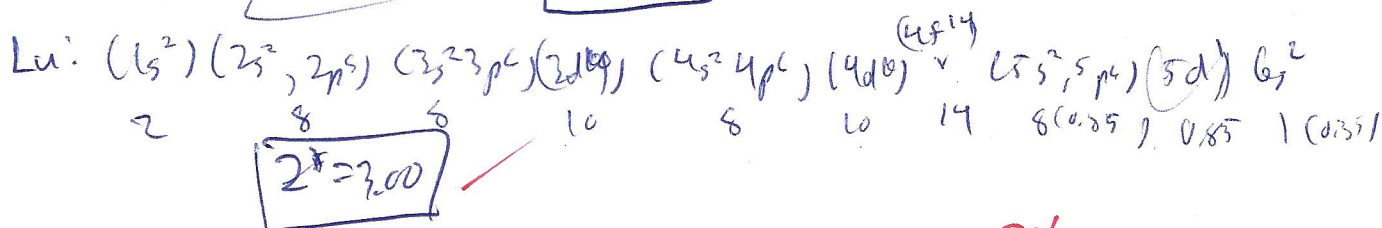 Lu: (1s²) (2s², 2p⁶) (3s² 3p⁶) (3d¹⁰) (4s² 4p⁶) (4d¹⁰) (4f¹⁴) (5s², 5p⁶) (5d¹) 6s²
2 8 8 10 8 10 14 8(0.85) 0.85 1(0.35)
Z* = 3.00